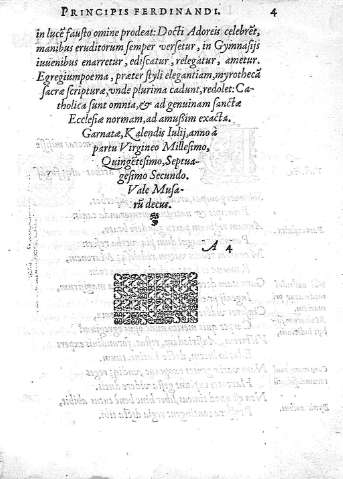 PRINCIPIS FERDINANDI. 4
in lucē fausto omine prodeat: Docti Adoreis celebrēt,
manibus eruditorum semper versetur, in Gymnasijs
iuuenibus enarretur, ediscatur, relegatur, ametur.
Egregium poema, præter styli elegantiam, myrothecā
sacræ scripturæ, vnde plurima cadunt, redolet: Ca-
tholica sunt omnia, & ad genuinam sanctæ
Ecclesiæ normam, ad amußim exacta.
Garnatæ, Kalendis Iulij, anno à
partu Virgineo Millesimo,
Quingētesimo, Septua-
gesimo Secundo.
Vale Musa-
rū decus.
A 4